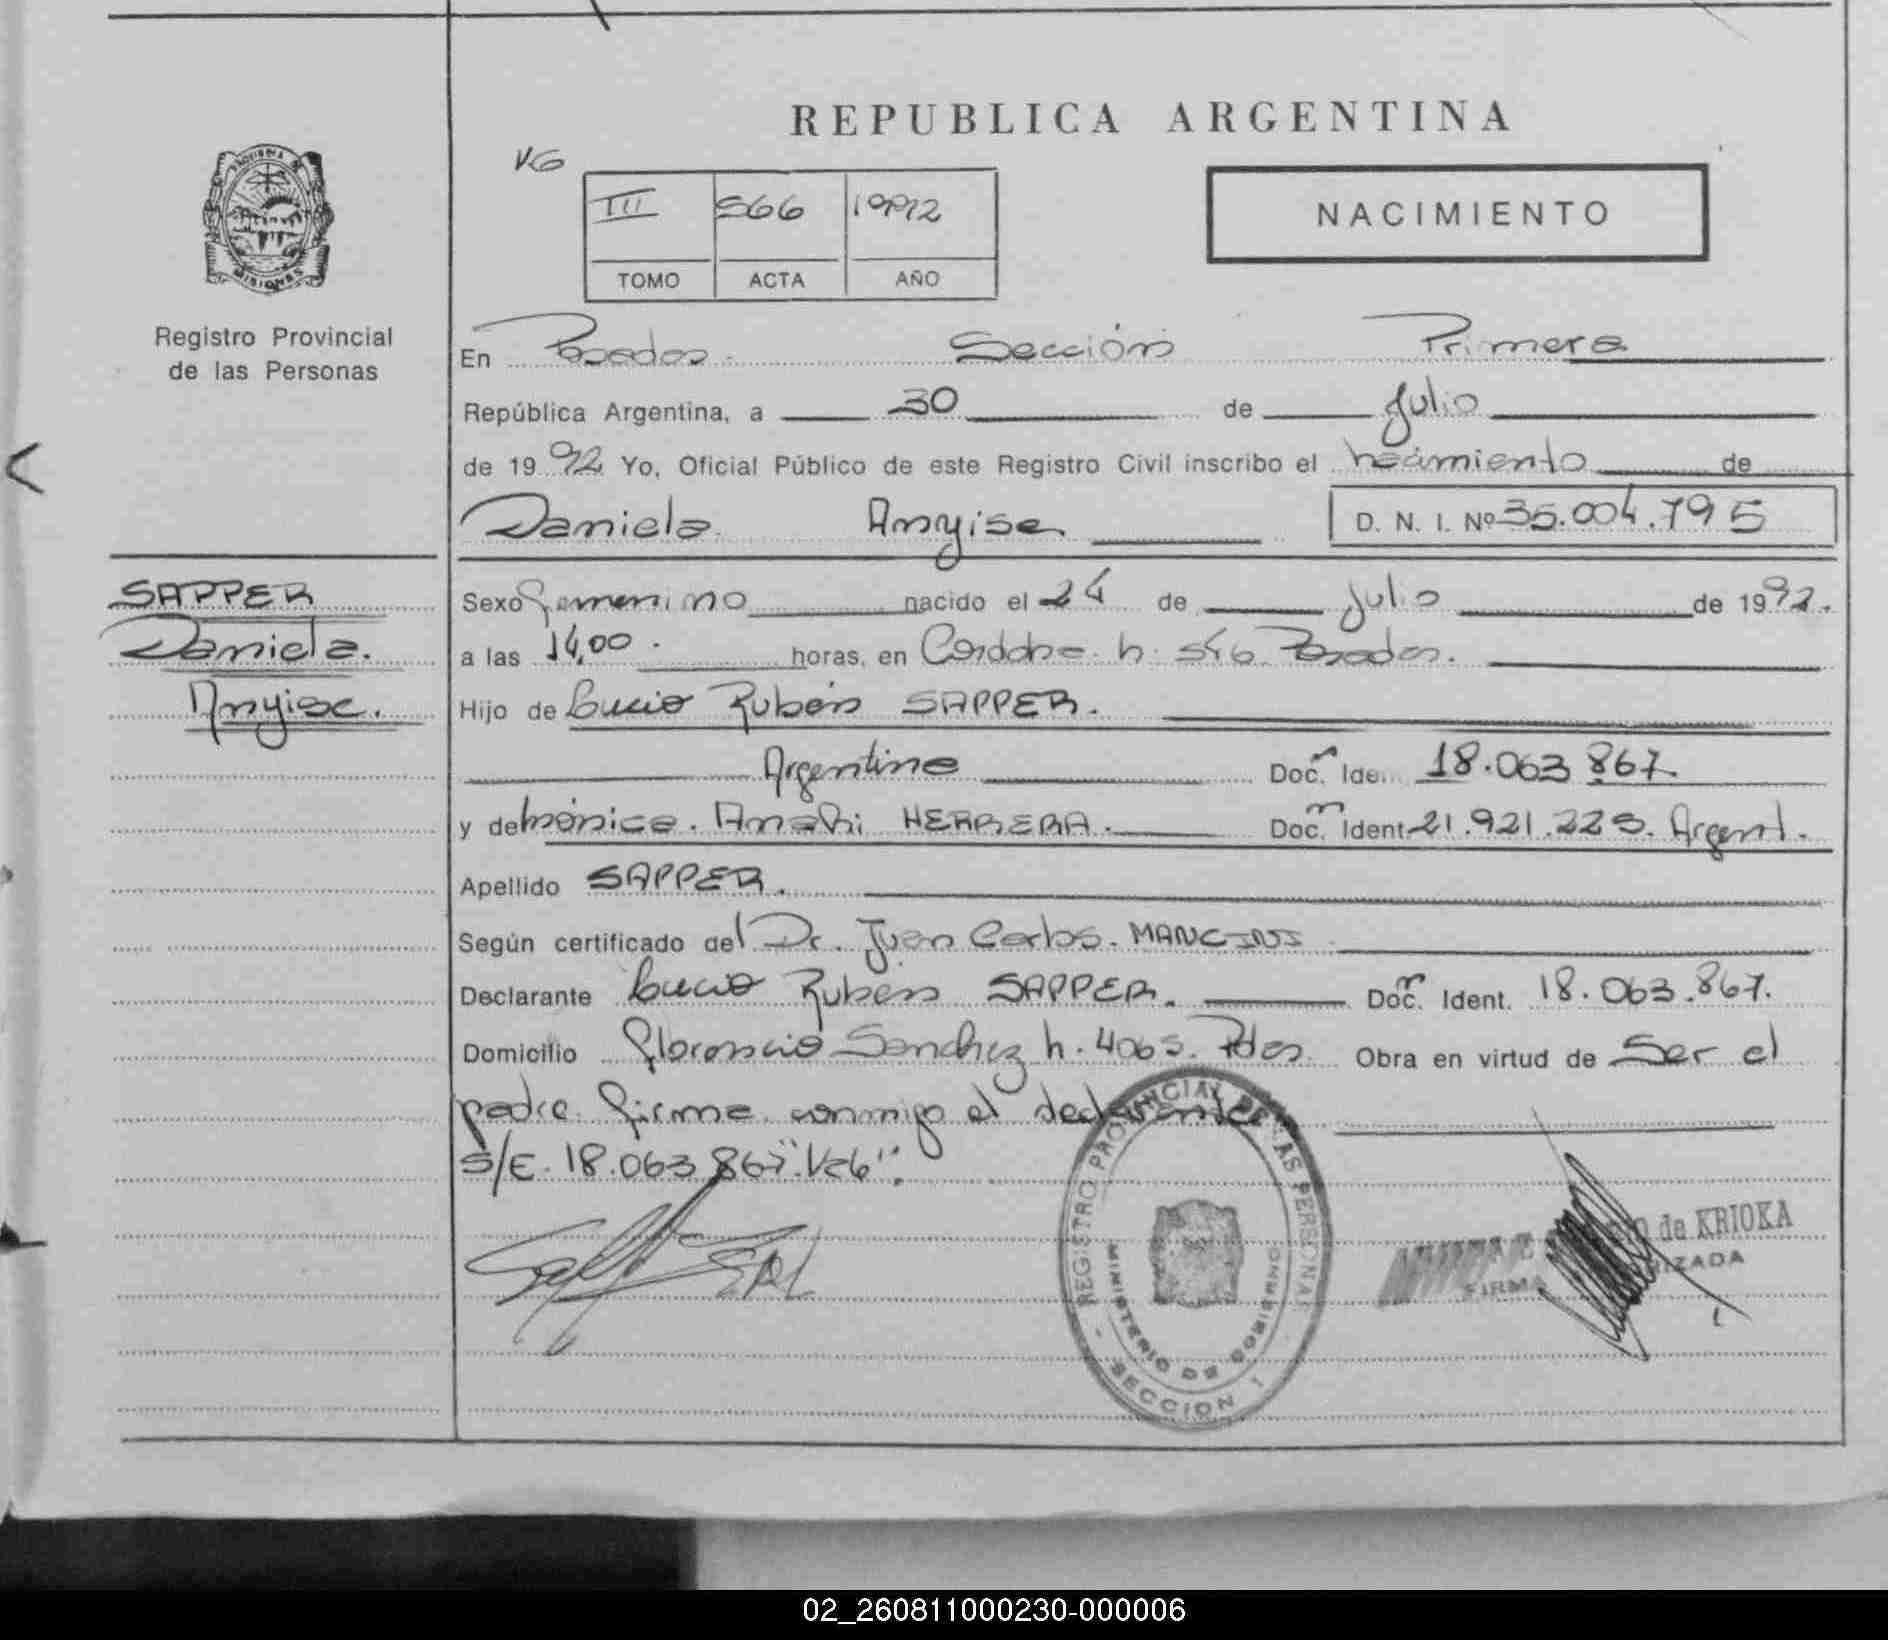 REPUBLICA ARGENTINA
VG
III 566 1992
TOMO ACTA AÑO
NACIMIENTO
MISIONES
Registro Provincial
de las Personas
En Posadas Sección Primera
República Argentina, a 30 de Julio
de 1992 Yo, Oficial Público de este Registro Civil inscribo el nacimiento de
Daniela Anyise D. N. I. Nº 35.004.795
SAPPER
Daniela.
Anyise.
Sexo femenino nacido el 24 de Julio de 1992.
a las 14,00. horas, en Cordoba n. 546 Posadas.
Hijo de Lucio Rubén SAPPER.
Argentino Doc. Iden. 18.063.867.
y de Mónica Anahi HERRERA. Doc. Ident. 21.921.225. Argent.
Apellido SAPPER.
Según certificado del Dr. Juan Carlos MANCINI
Declarante Lucio Rubén SAPPER. Doc. Ident. 18.063.867.
Domicilio Florencio Sanchez n. 4065. Pdas. Obra en virtud de Ser el
padre. firma conmigo el declarante
S/E. 18.063.867 "Vale".
REGISTRO PROVINCIAL DE LAS PERSONAS
MINISTERIO DE GOBIERNO
SECCION I
de KRIOKA
FIRMA
02_260811000230-000006